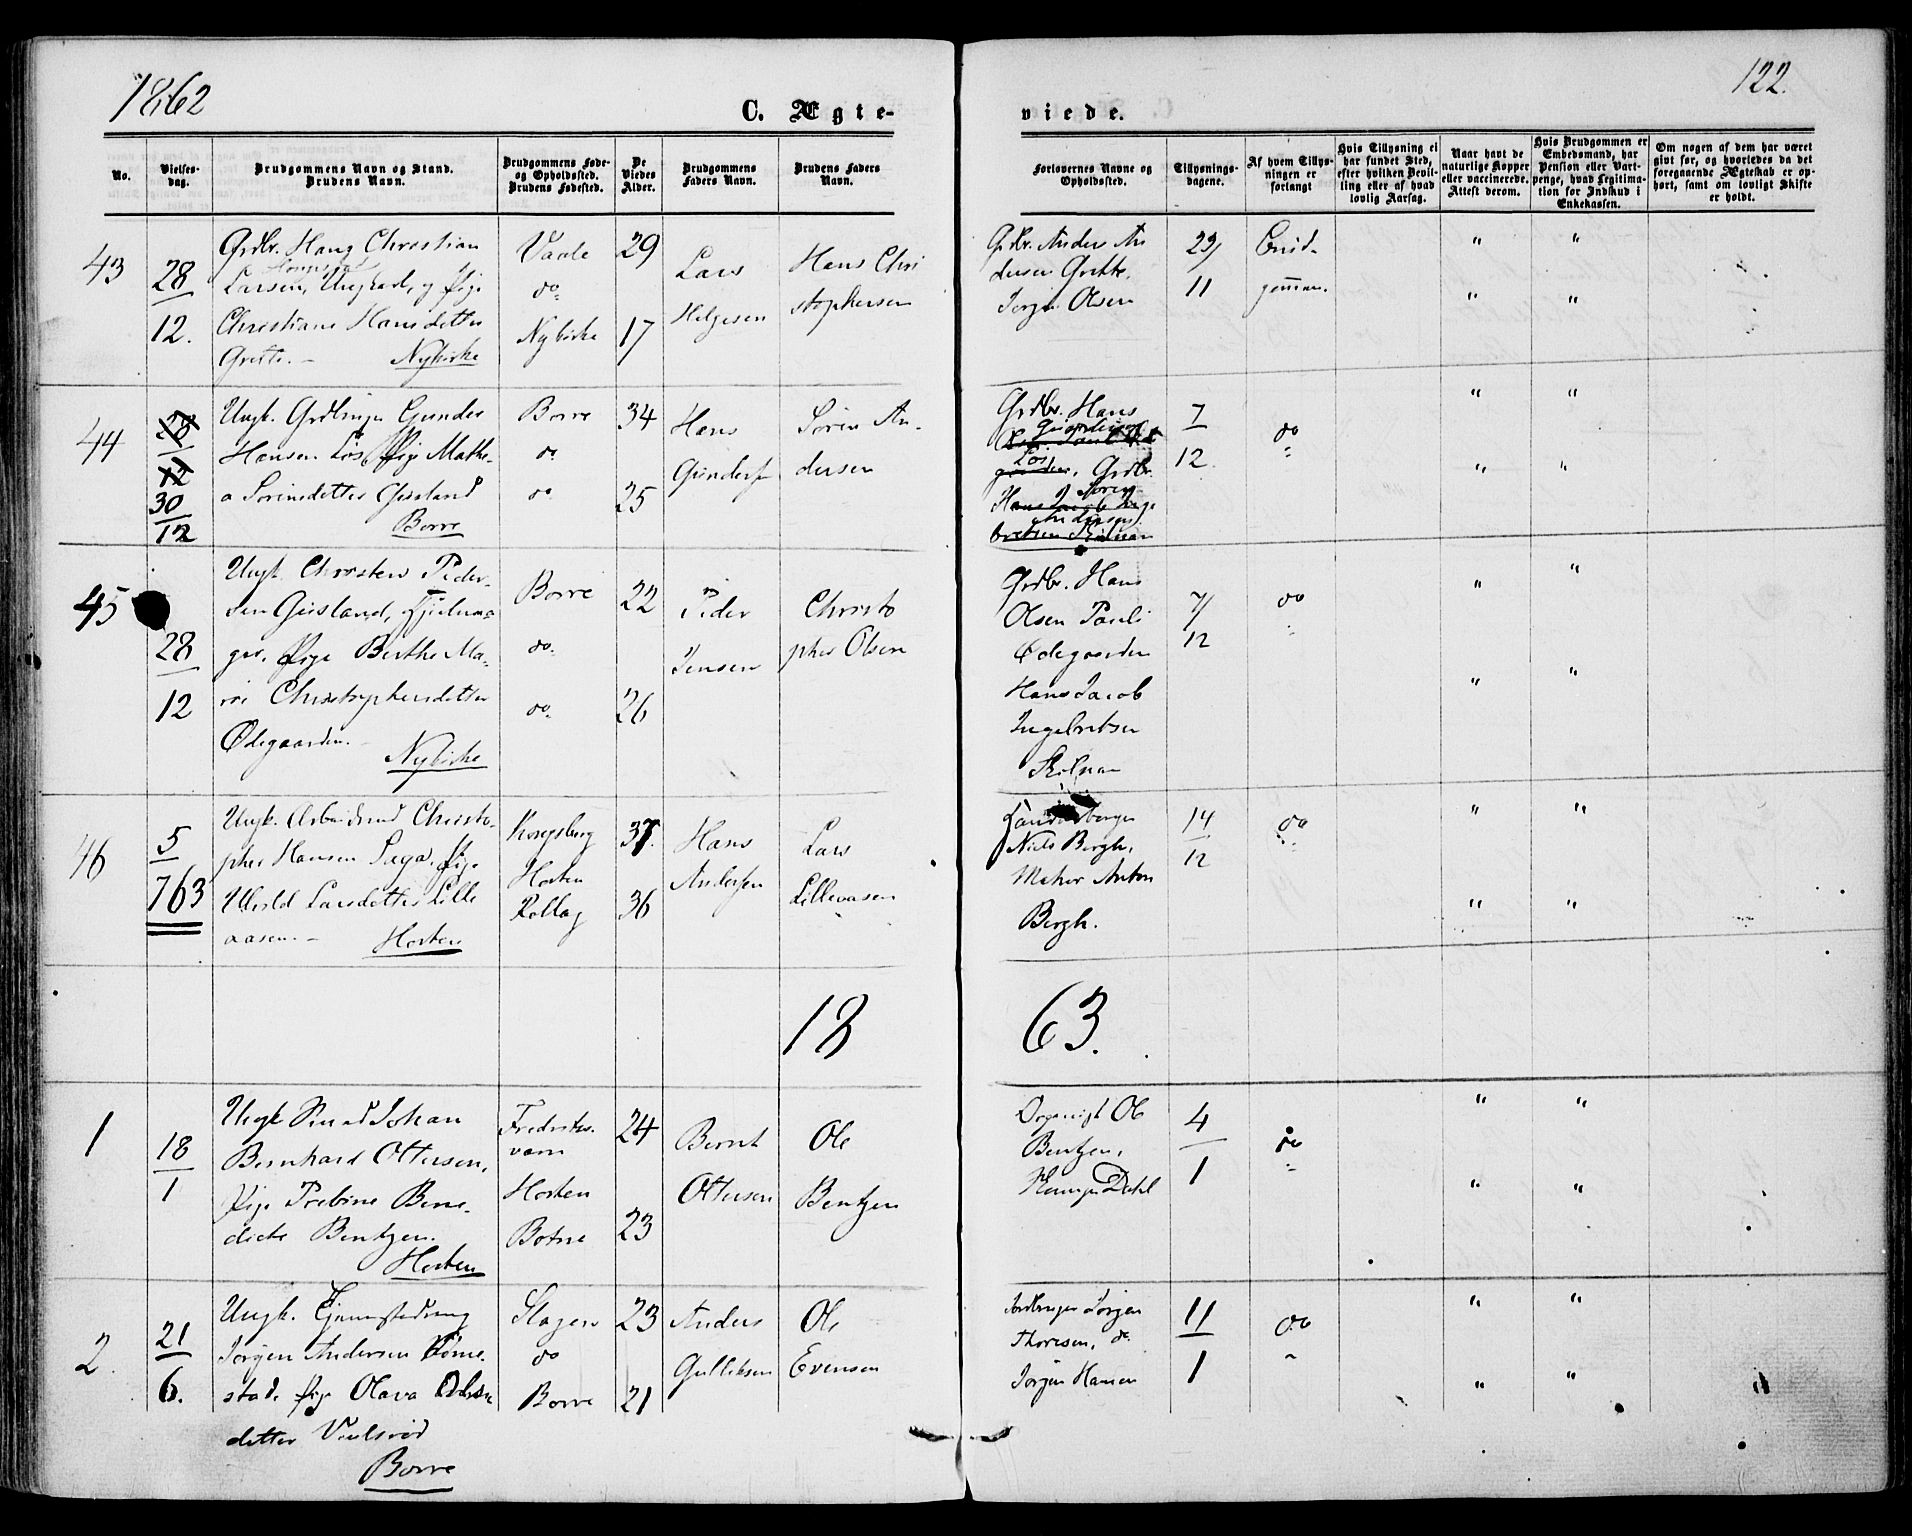 1862
122.
C. Ægte-
viede.
No.
Vielses-
dag.
Brudgommens Navn og Stand.
Brudens Navn.
Brudgommens Føde-
og Opholdssted.
Brudens Fødested.
De
Viedes
Alder.
Brudgommens
Faders Navn.
Brudens Faders
Navn.
Forlovernes Navne og
Opholdssted.
Tillysnings-
dagene.
Af hvem Tillys-
ningen er
forlangt
Hvis Tillysning ei
har fundet Sted,
efter hvilken Bevil-
ling eller af hvad
lovlig Aarsag.
Naar havt de
naturlige Kopper
eller vaccinerede.
Attest derom.
Hvis Brudgommen er
Embedsmand, har
Pension eller Vart-
penge, hvad Legitima-
tion for Indskud i
Enkekassen.
Om nogen af dem har været
givt før, og hvorledes da det
foregaaende Ægteskab er op-
hørt, samt om lovligt Skifte
er holdt.
43
28
12.
Grdbr. Hans Christian
Larsen, Ungkarl, og Pige
Christiane Hansdatter
Grette. - Nykirke
Vaale
do
Nykirke
29
17
Lars
Helgesen
Hans Chri
stophersen
Grdbr. Anders An
dersen Grette.
Jørgen Olsen
23/
11
Brud-
gommen.
" "
" "
44
28
12
30
12
Ungk. Grdbruger Gunder
Hansen Løs, Pige Mathe-
a Sørensdatter Gisland
Borre
Borre
do
do
34
25
Hans
Gundersen
Søren An-
dersen
Grdbr. Hans
Gundersen
Løs
Grdbr.
Søren
Andersen
7
12.
do
" "
" "
45
28
12
Ungk. Christen Peder-
sen Gisland, Hjulma-
ger. Pige Berthe Ma-
rie Christophersdatter
Ødegaarden. -
Nykirke
Borre
do
do
22
26
Peder
Jensen
Christo
pher Olsen
Grdbr. Hans
Olsen Pauli
Ødegaarden
Hans Jacob
Ingebretsen
7/
12
do
" "
" "
46
5
763
Ungk. Arbeidsmd Christo-
pher Hansen Saga, Pige
Larsdatter Lille
aasen. - Horten
Kongsberg
Horten
Rollag
37.
36
Hans
Andersen
Lars
Lilleaasen
Niels Bergh,
Maler Anton
Bergh.
14
12
do
" "
" "
18
63.
1
18
1
Ungk Johan
Bernhard Ottersen,
Pige Bene-
dicte Bentzen.
Horten
Fredriks-
værn
Horten
Botne
24
23
Bernt
Ottersen
Ole
Bentzen
Ole
Bentzen,
Dahl
4
1
do
" "
" "
2
21
6.
Ungk.
Jørgen Andersen
stad. Pige Olava Ols
datter
Borre
Slagen
do
Borre
23
21
Anders
Gulliksen
Ole
Evensen
Jordbruger Jørgen
Thoresen, do
Jørgen Hansen
11
1
do
" "
" "